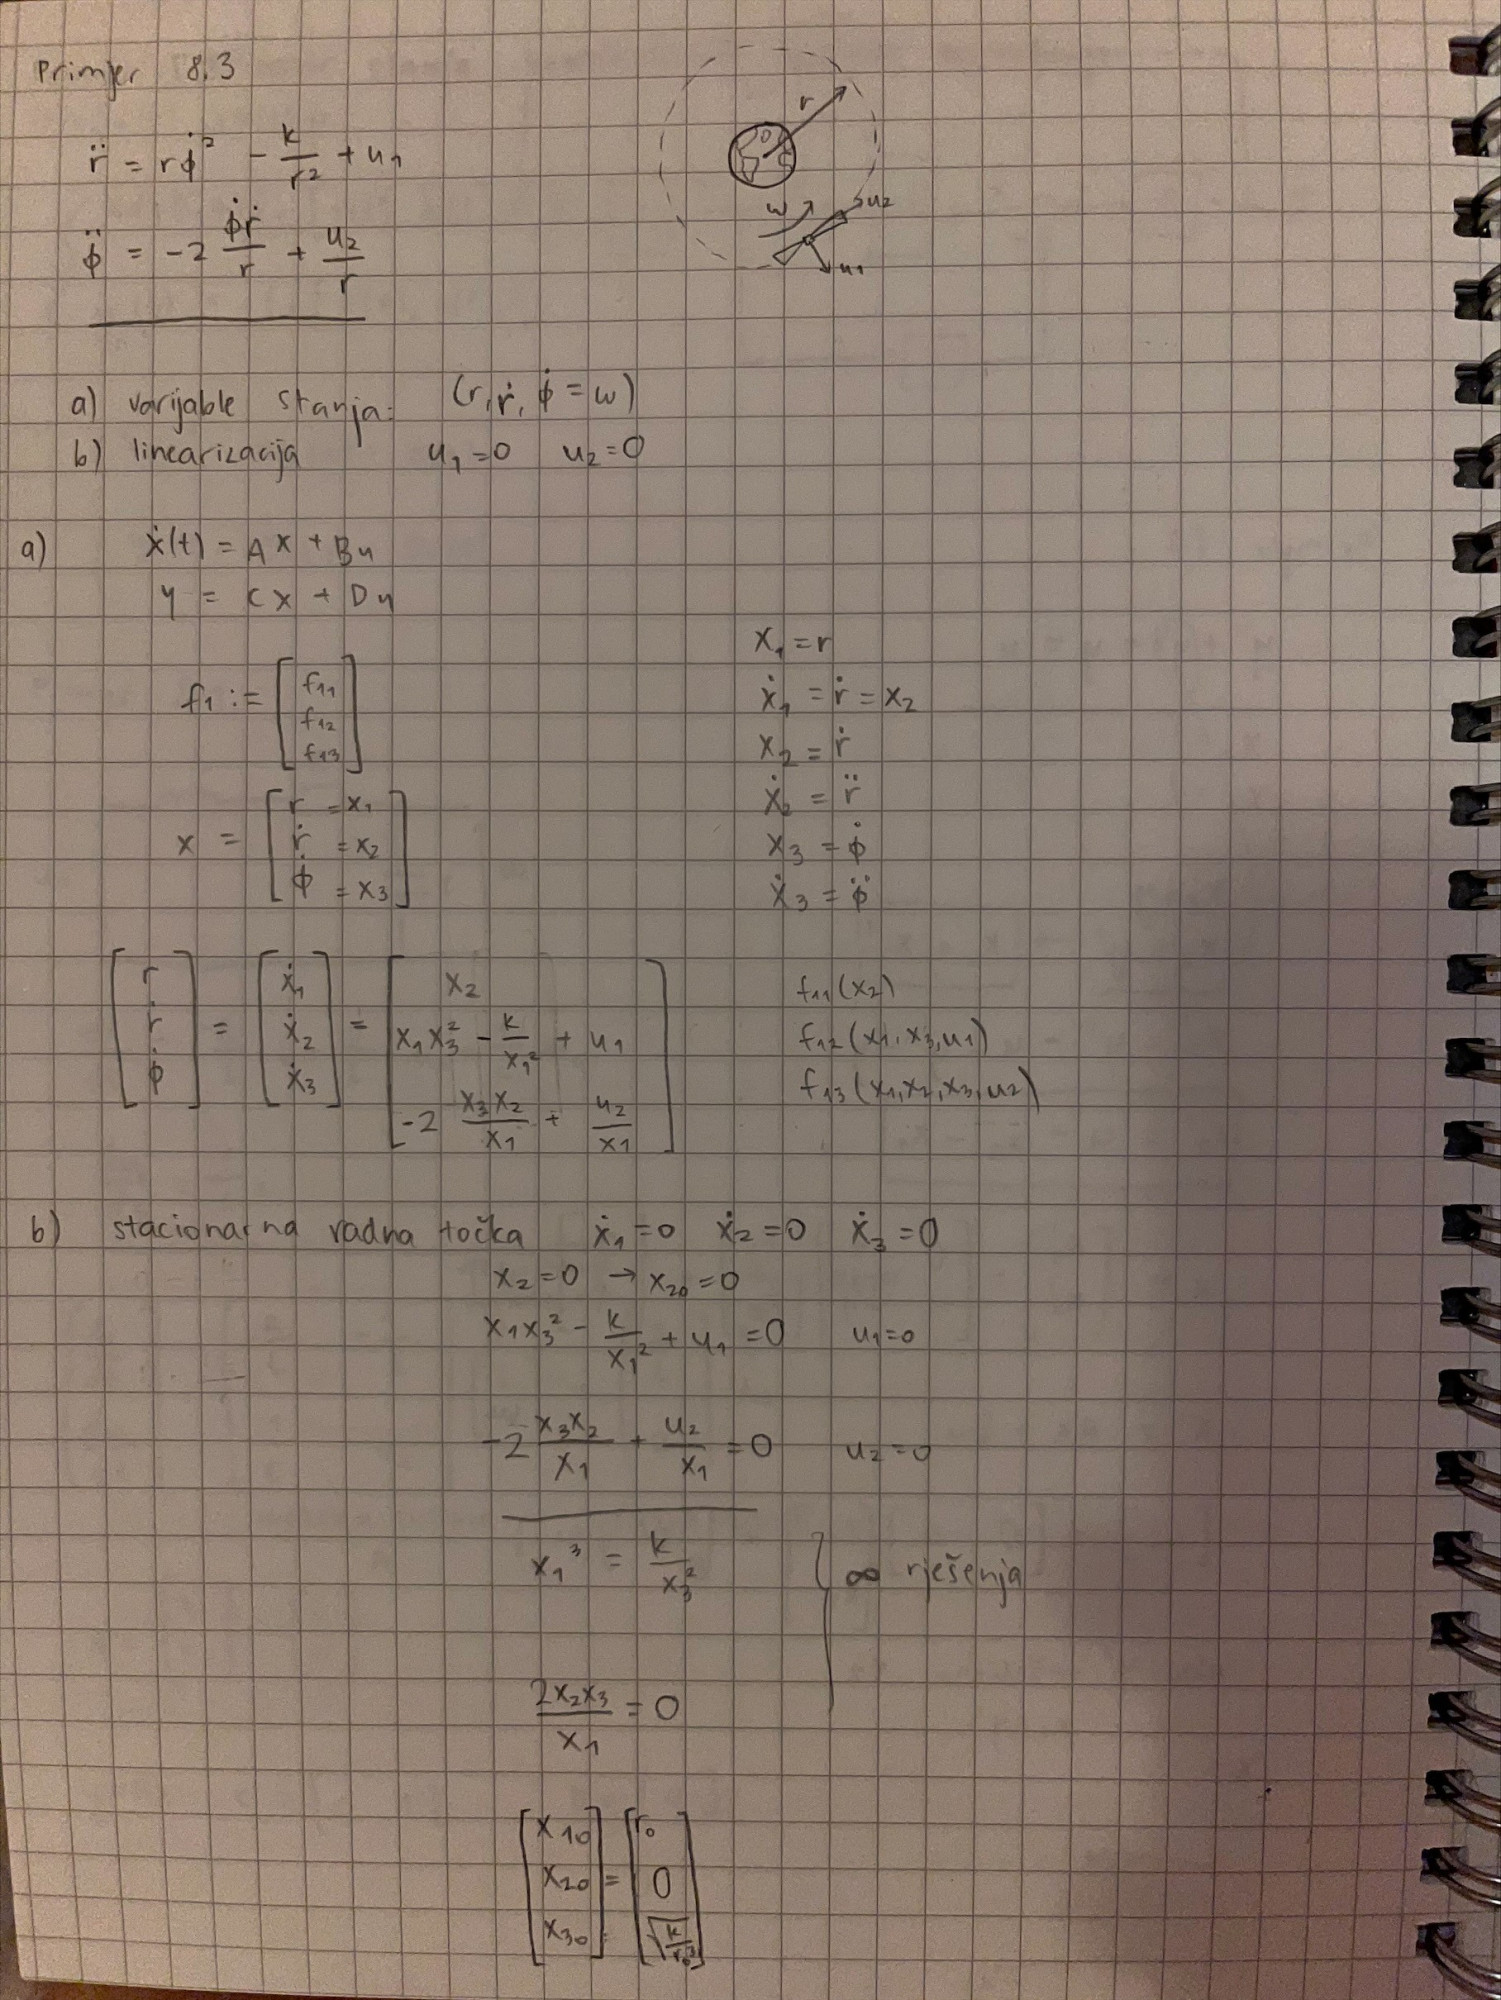 Primjer 8.3
r̈ = rφ̇² - k/r² + u₁
φ̈ = -2 φ̇ṙ/r + u₂/r
r
w
u₂
u₁
a) varijable stanja: (r, ṙ, φ̇ = w)
b) linearizacija u₁=0 u₂=0
a) ẋ(t) = Ax + Bu
y = Cx + Du
f₁ := [f₁₁
f₁₂
f₁₃]
x₁ = r
ẋ₁ = ṙ = x₂
x₂ = ṙ
ẋ₂ = r̈
x₃ = φ̇
ẋ₃ = φ̈
x = [r = x₁
ṙ = x₂
φ̇ = x₃]
[r
ṙ
φ̇] = [ẋ₁
ẋ₂
ẋ₃] = [x₂
x₁x₃² - k/x₁² + u₁
-2 x₃x₂/x₁ + u₂/x₁]
f₁₁(x₂)
f₁₂(x₁, x₃, u₁)
f₁₃(x₁, x₂, x₃, u₂)
b) stacionarna radna točka ẋ₁=0 ẋ₂=0 ẋ₃=0
x₂=0 → x₂₀=0
x₁x₃² - k/x₁² + u₁ = 0 u₁=0
-2 x₃x₂/x₁ + u₂/x₁ = 0 u₂=0
x₁³ = k/x₃² } ∞ rješenja
2x₂x₃/x₁ = 0
[x₁₀
x₂₀
x₃₀] = [r₀
0
√(k/r₀³)]